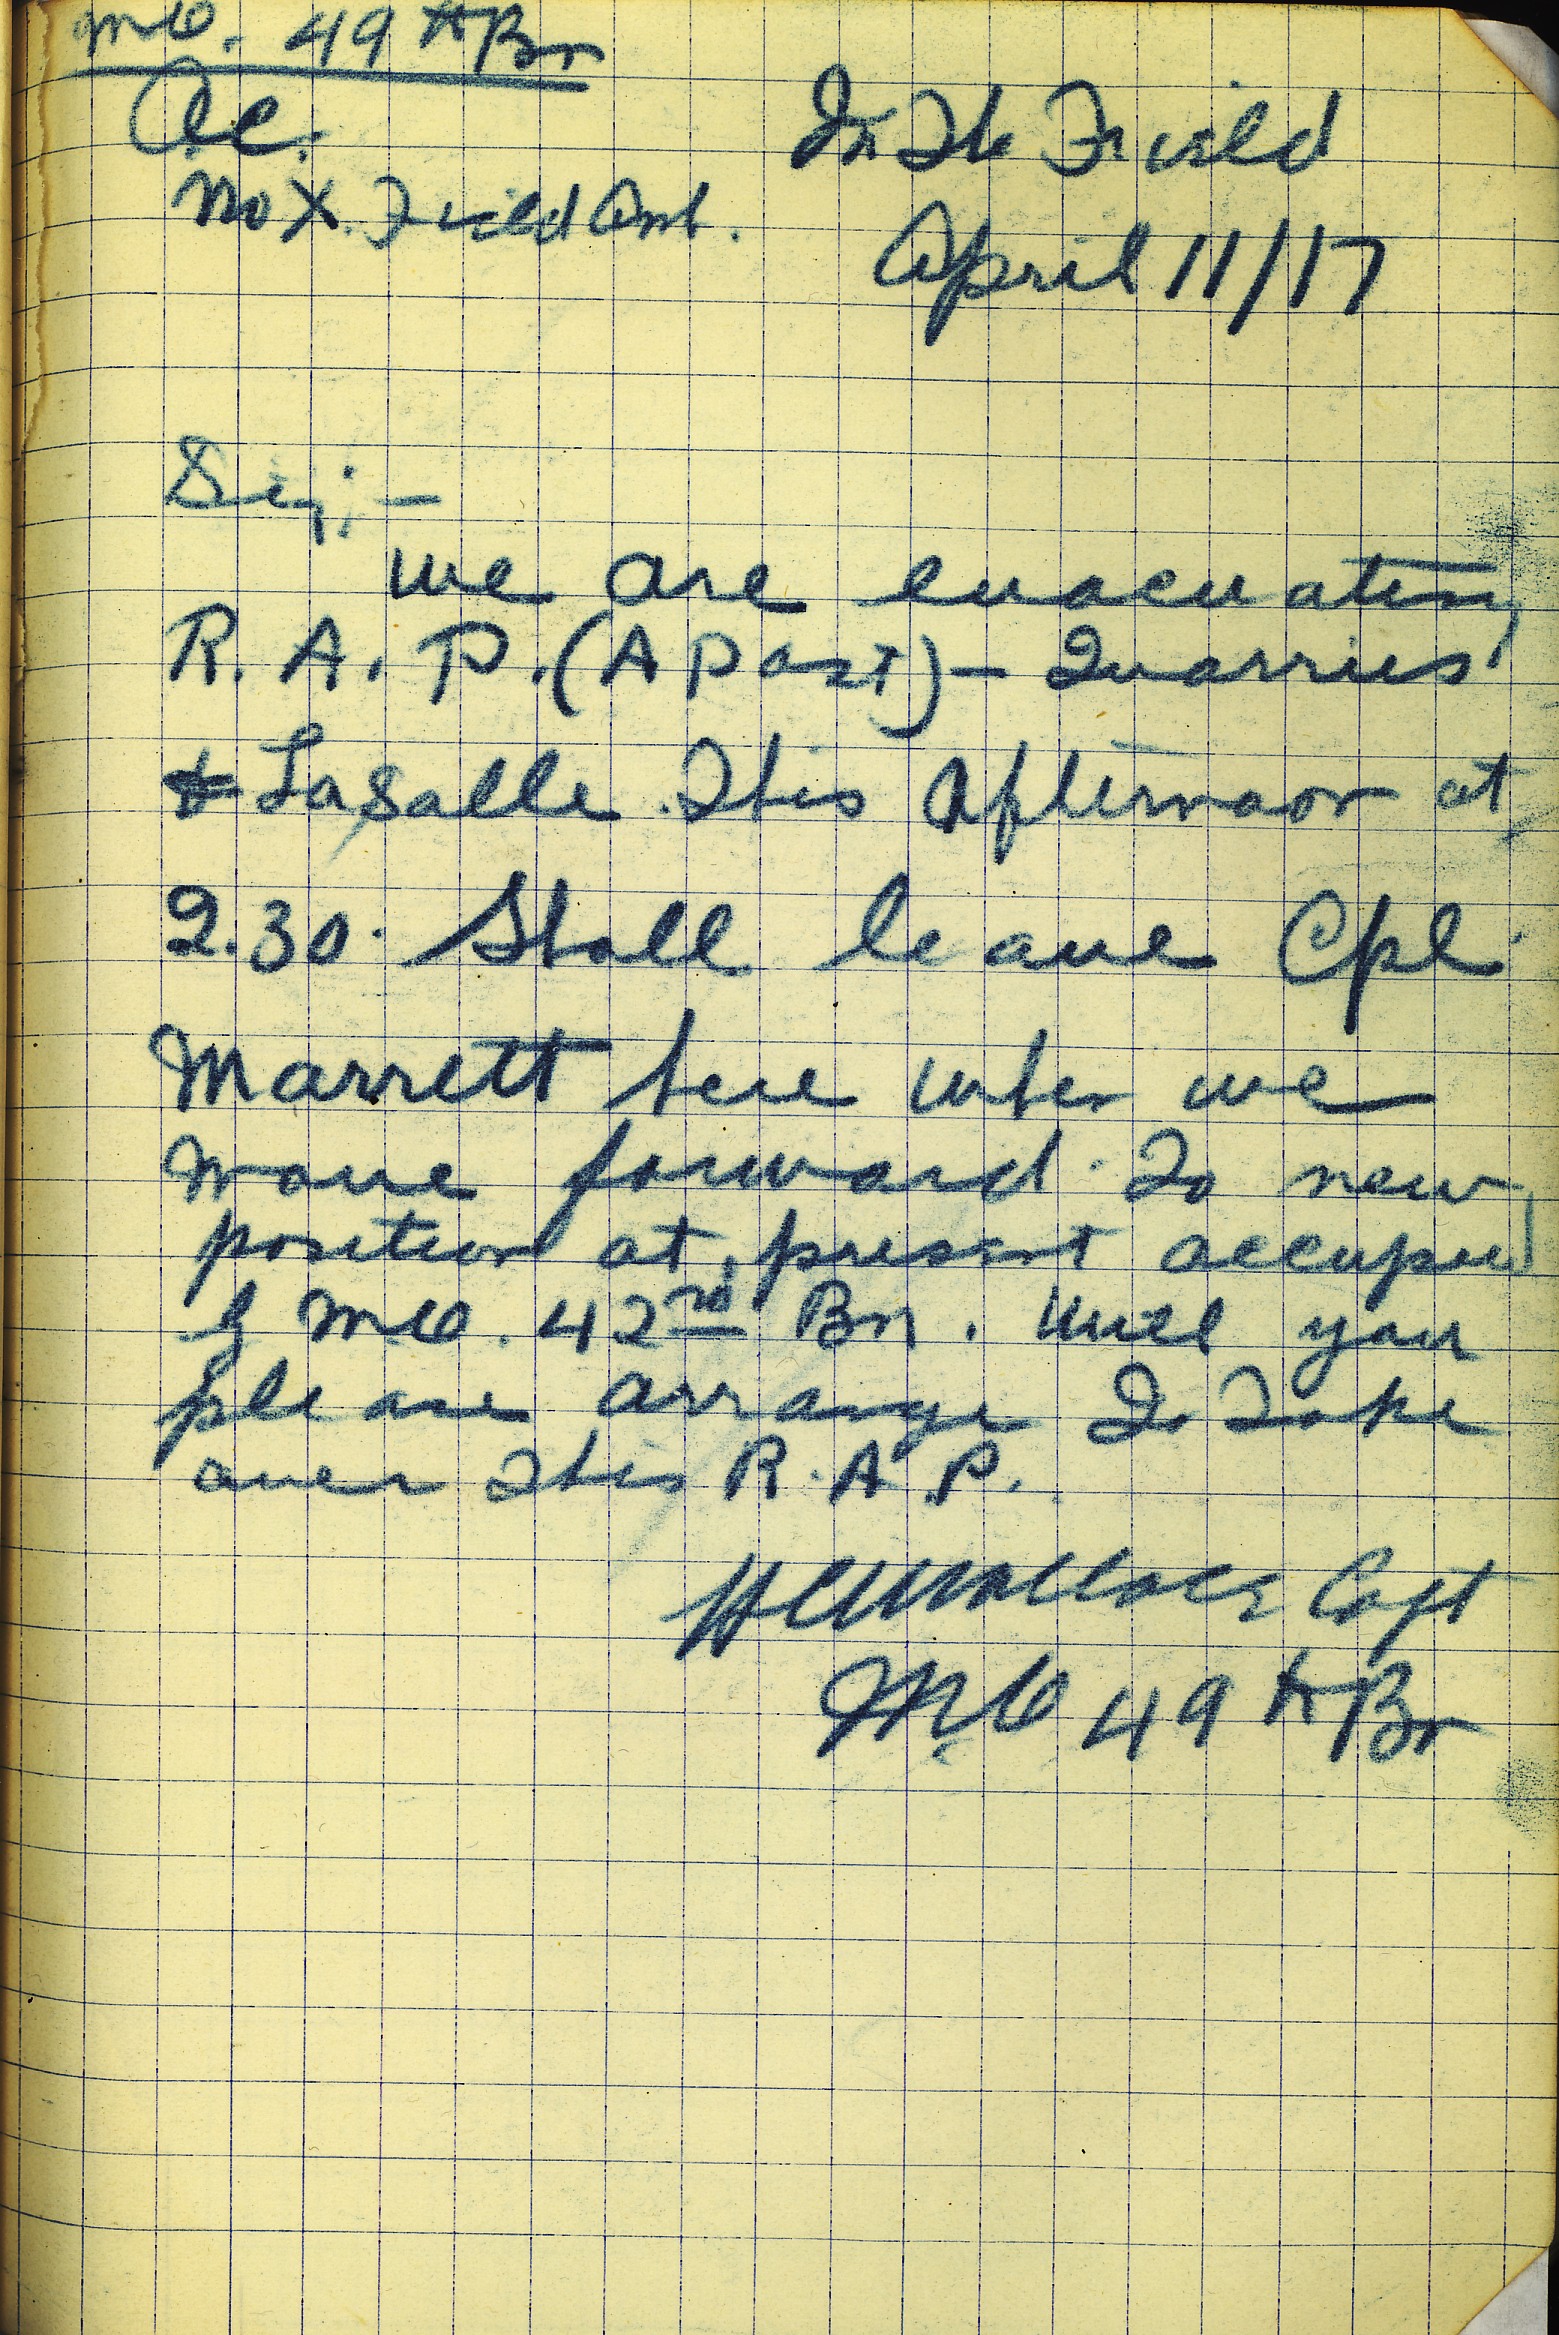 M.O. 49th Bn
O.C.
No X. Field Amb.
In The Field
April 11/17
Sir;—
We are evacuating
R. A. P. (A Post) – Quarries
& LaSalle This Afternoon at
2.30. Shall leave Cpl.
Marrett here when we
move forward to new
position at present occupied
by M.O. 42nd Bn. Will you
please arrange To Take
over This R.A.P.
Wallace Capt
M.O 49th Bn